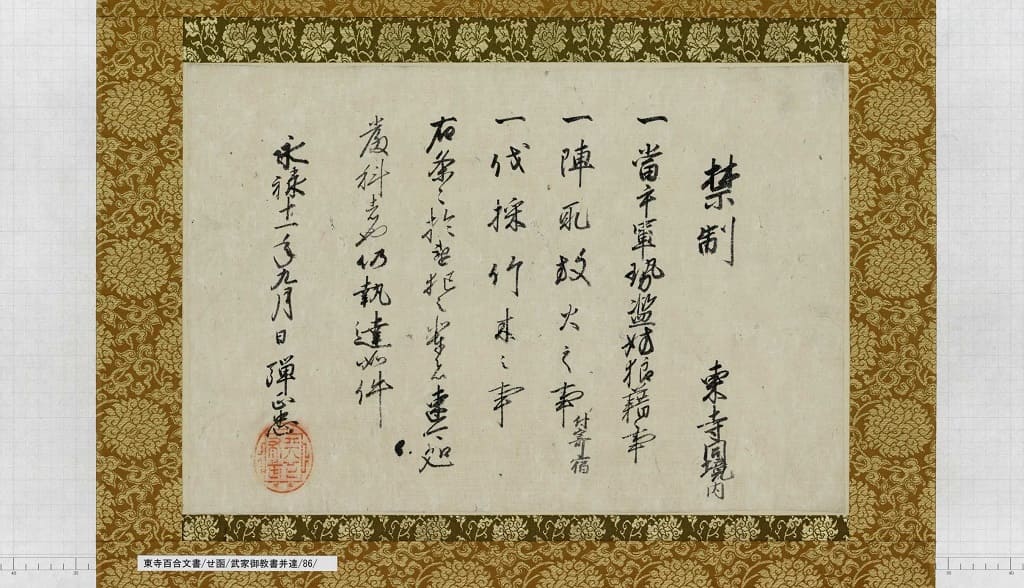 禁制　東寺同境内
一當手軍勢濫妨狼藉事
一陣取放火之事付寄宿
一伐採竹木之事
右条々於違犯之輩者速可処
厳科者也仍執達如件
永禄十一年九月日　弾正忠
天下布武
東寺百合文書/せ函/武家御教書并達/86/